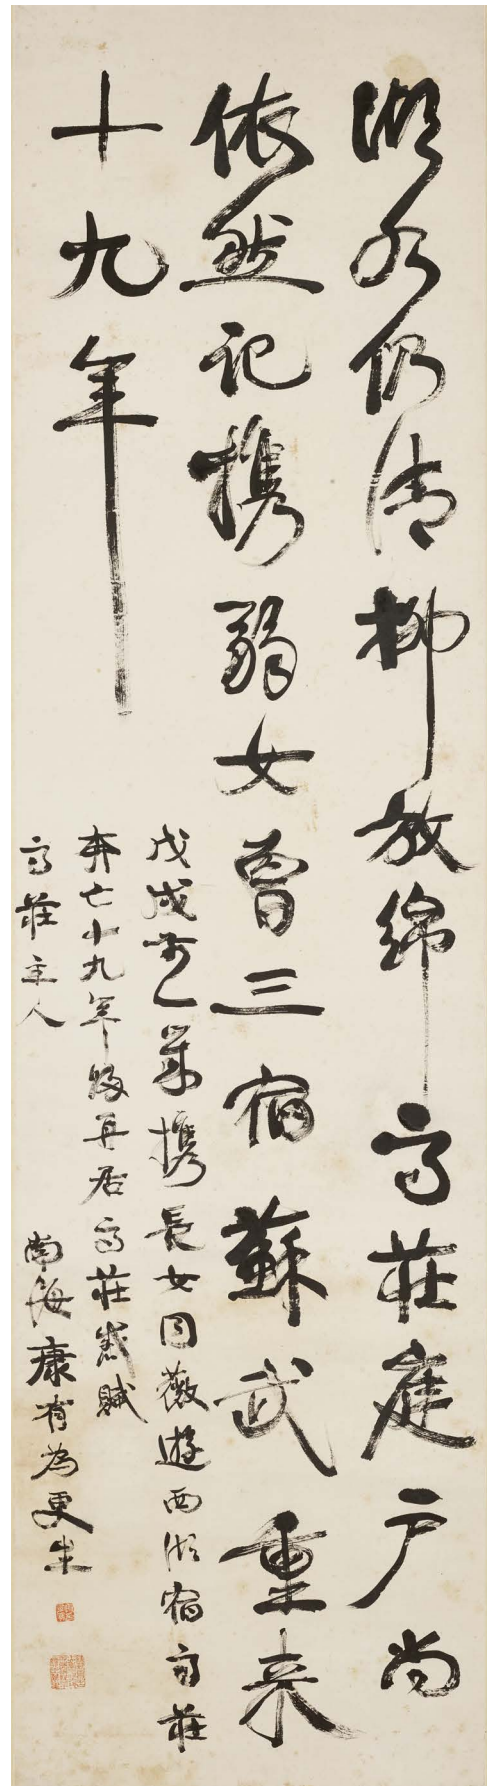 湖水仍清柳放綿高莊庭戶尚
依然記攜弱女曾三宿蘇武重來
十九年
戊戌前一歲攜長女同薇遊西湖宿高莊
奔亡十九年後再居高莊感賦
高莊主人
南海康有為更生